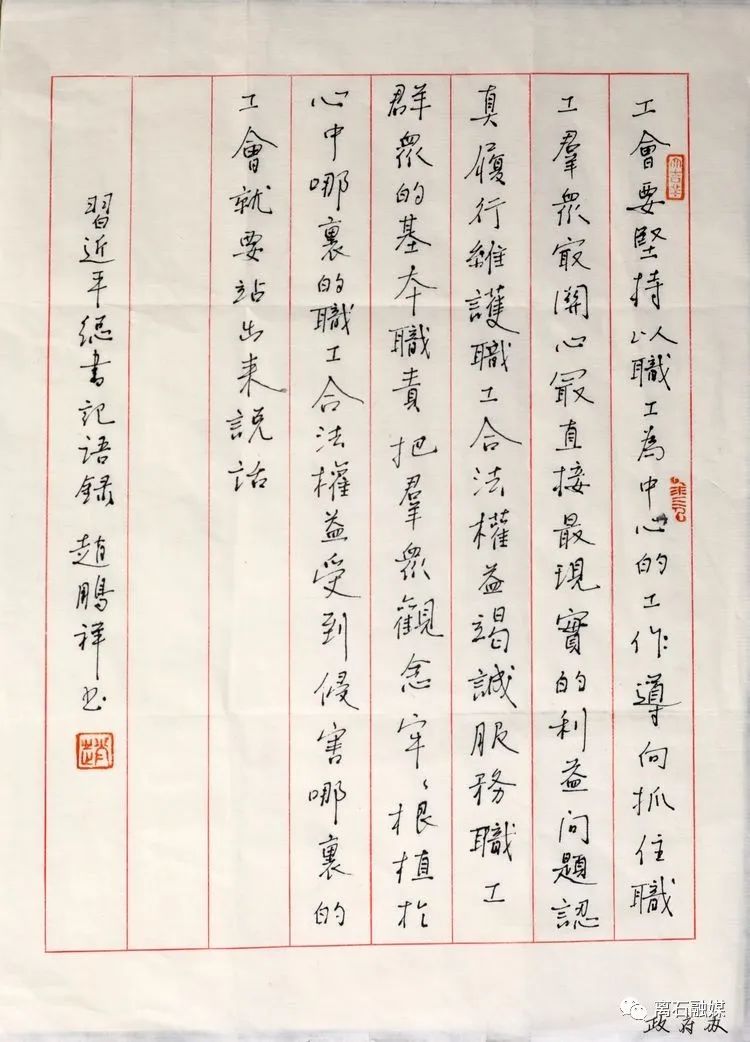 工會要堅持以職工為中心的工作導向抓住職
工羣眾最關心最直接最現實的利益問題認
真履行維護職工合法權益竭誠服務職工
群眾的基本職責把羣眾觀念牢、根植於
心中哪裏的職工合法權益受到侵害哪裏的
工會就要站出来説話
習近平總書記語錄 趙鵬祥书
趙
政府办
离石融媒